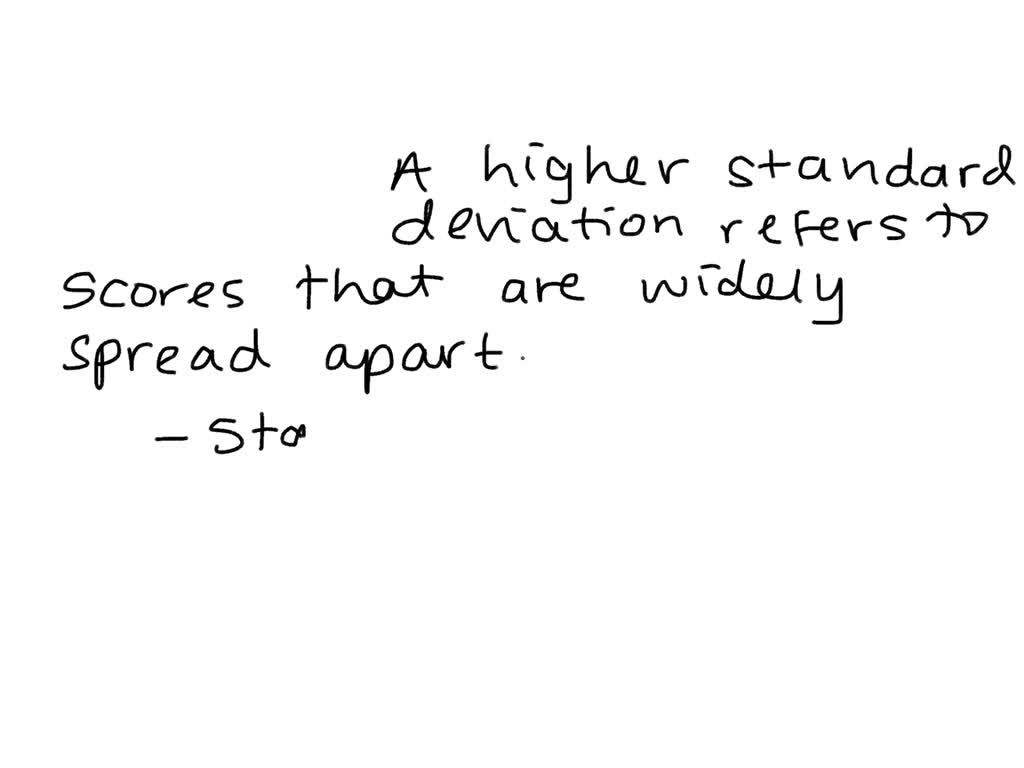 A higher standard
deviation refers to
scores that are widely
spread apart.
- Sta